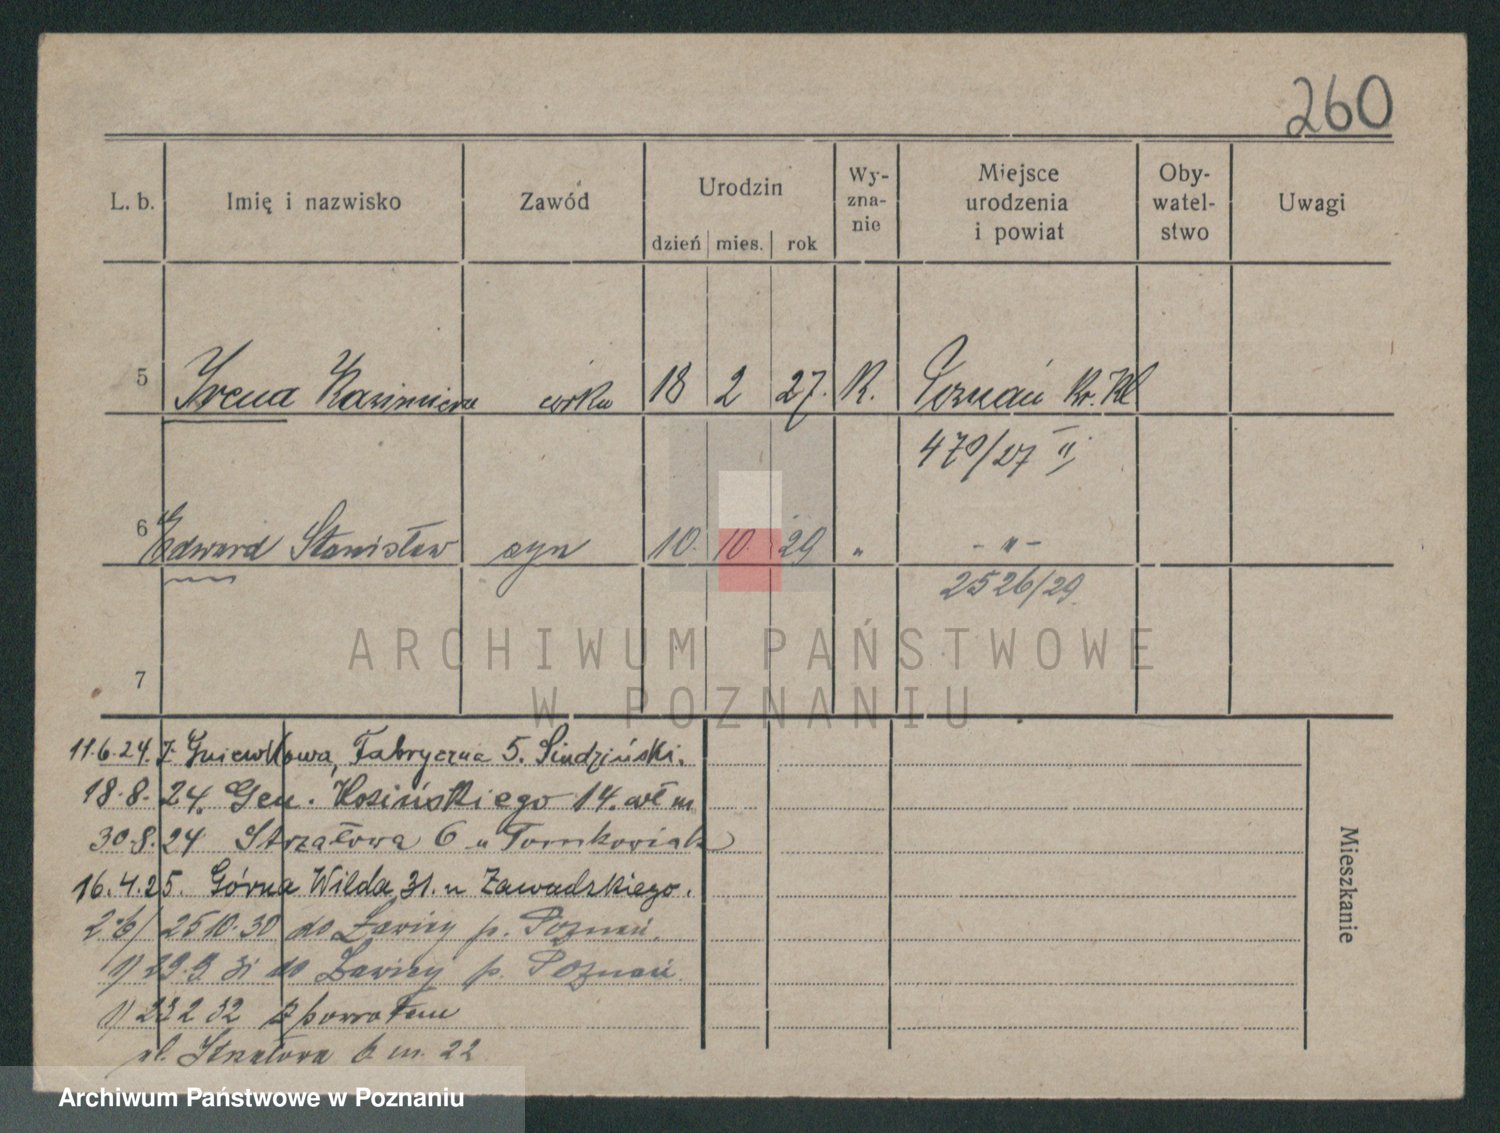 260
L. b. Imię i nazwisko Zawód Urodzin dzień mies. rok Wy-zna-nie Miejsce urodzenia i powiat Oby-watel-stwo Uwagi
5 Irena Kazimiera córka 18 2 27. R. Poznań Kr. Kl
470/27 II
6 Edward Stanisław syn 10. 10. 29 " - " -
2526/29.
7
ARCHIWUM PAŃSTWOWE
W POZNANIU
11.6.24. z Gniewkowa, Fabryczna 5.
18.8.24. Gen. Kosińskiego 14.
30.8.24 Strzałowa 6 u Tomkowiak
16.4.25. Górna Wilda 31. u Zawadzkiego.
25 10. 30 do Ławicy p. Poznań.
1) 29.9 31 do Ławicy p. Poznań.
1) 23 2 32 z powrotem
ul. Strzałowa 6 m. 22
Mieszkanie
Archiwum Państwowe w Poznaniu